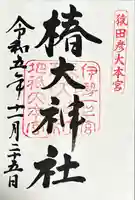 猿田彦大本宮
伊勢一之宮
椿大神社
地祇大本宮
令和五年十一月二十五日